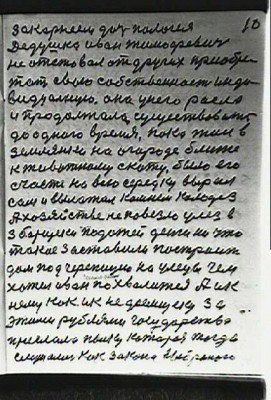 10
Дедушка иван тимофеевич
не отставал от других приобре
тат свою собственност инди
видуалную. она у него расла
и продолжала существоват
до одного время, пока жил в
землянки на огороде ближе
к животному скоту, было его
счасте на всю середку вырыл
сам и выложил камнем колодез
А хозяйстве не повезло улез в
подотей денги на что
такое заставили построит
дом под черепицую на улецы чем
хотел иван похвалится А ик
нему как ик не доемщику за
этими рублями государство
прислало пику которая тогда
слушалис как закона